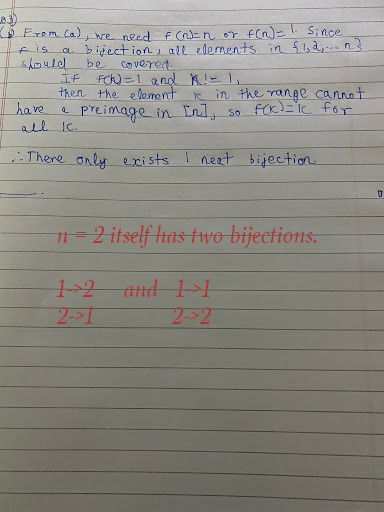 Q3)
(b) From (a), we need f(n)=n or f(n)=1. Since
f is a bijection, all elements in {1,2,...n}
should be covered.
If f(k)=1 and k!=1,
then the element k in the range cannot
have a preimage in [n], so f(k)=k for
all k.
∴There only exists 1 neat bijection
n = 2 itself has two bijections.
1->2 and 1->1
2->1 2->2